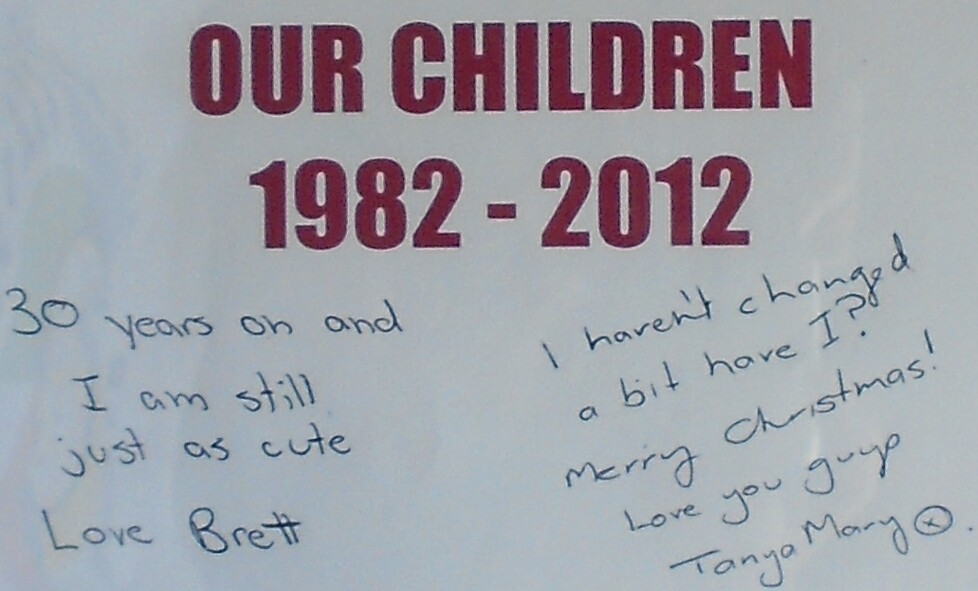 OUR CHILDREN
1982 - 2012
30 years on and
I am still
just as cute
Love Brett
I haven't changed
a bit have I?
Merry Christmas!
Love you guys
Tanya Mary ⓧ.